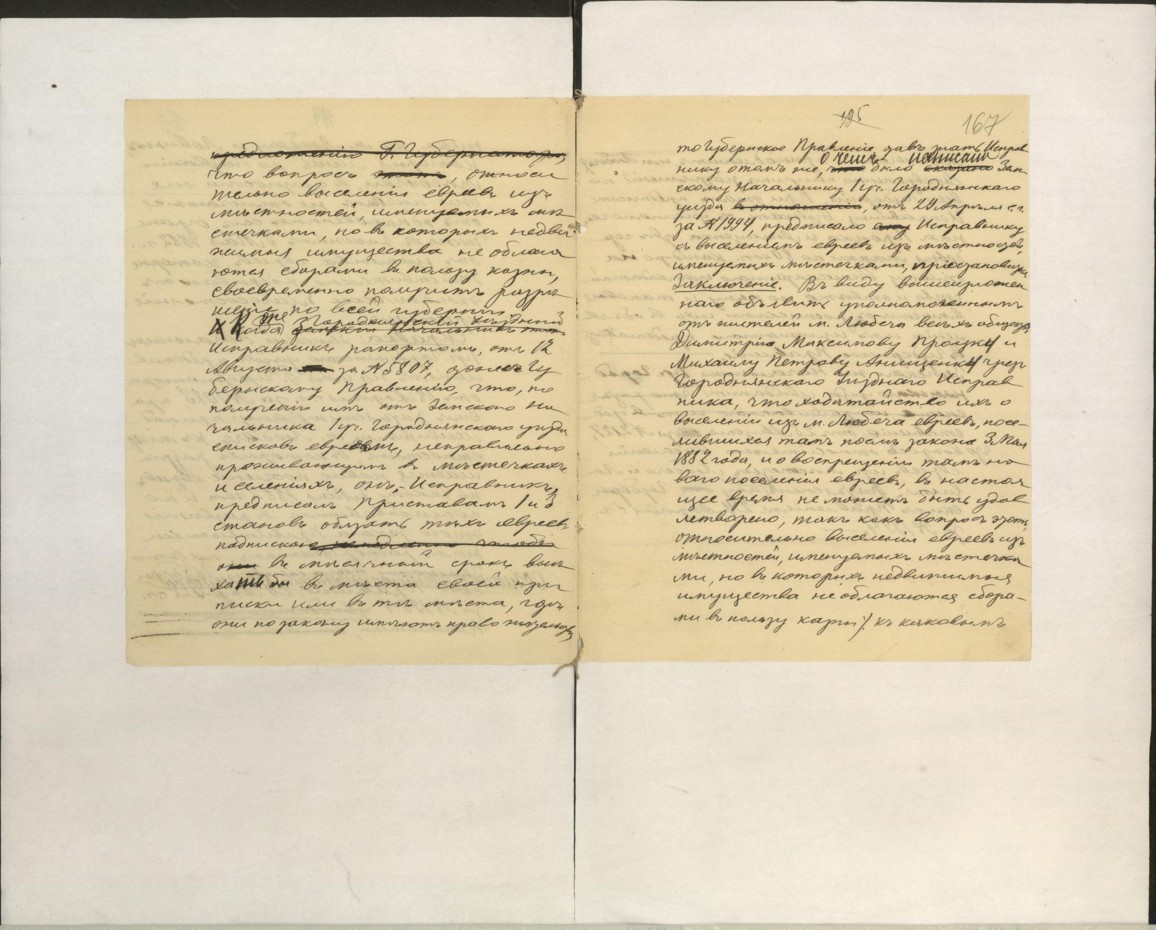 предложенію Г. Губернатора,
что вопросъ , относи
тельно выселенія евреевъ изъ
мѣстностей, именуемыхъ мѣ
стечками, но въ которыхъ недви-
жимыя имущества не облага
ются сборами въ пользу казны,
своевременно получитъ разрѣ
шеніе по всей губерніи.
Городнянскій Уѣздный
Когда Земскій Начальникъ
Исправникъ рапортомъ, отъ 12
Августа за № 5807, донесъ Гу
бернскому Правленію, что, по
полученіи имъ отъ Земскаго На
чальника 1 уч. Городнянскаго уѣзда
списковъ евреямъ, неправильно
проживающимъ въ мѣстечкахъ
и селеніяхъ, онъ, Исправникъ,
предписалъ Приставамъ 1 и 3
становъ обязать тѣхъ евреевъ
подпискою
въ мѣсячный срокъ выѣ
хать бы въ мѣста своей при
писки или въ тѣ мѣста, гдѣ
они по закону имѣютъ право
185
167
то Губернское Правленіе давъ знать Исправ
о чемъ написано
нику о томъ же, было Зем
скому Начальнику 1 уч. Городнянскаго
уѣзда въ отношеніи, отъ 29 Апрѣля с.г.
за № 1994, предписало Исправнику
съ выселеніемъ евреевъ изъ мѣстностей,
именуемыхъ мѣстечками, пріостановиться
Заключеніе. Въ виду вышеизложен
наго объявить уполномоченнымъ
отъ жителей м. Любеча всѣхъ обществъ,
Димитрію Максимову и
Михаилу Петрову Анищенку чрезъ
Городнянскаго Уѣзднаго Исправ
ника, что ходатайство ихъ о
выселеніи изъ м. Любеча евреевъ, посе-
лившихся тамъ послѣ закона 3 Мая
1882 года, и о воспрещеніи тамъ но
ваго поселенія евреевъ, въ настоя
щее время не можетъ быть удов
летворено, такъ какъ вопросъ этотъ,
относительно выселенія евреевъ изъ
мѣстностей, именуемыхъ мѣстечка
ми, но въ которыхъ недвижимыя
имущества не облагаются сбора-
ми въ пользу казны, къ каковымъ